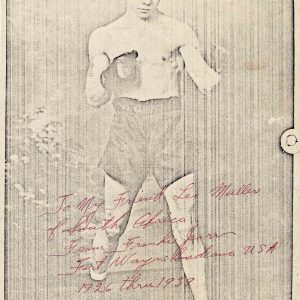 To My Friend Les Muller
of South Africa
From Frankie
Fort Wayne Indiana USA
1926 thru 1937